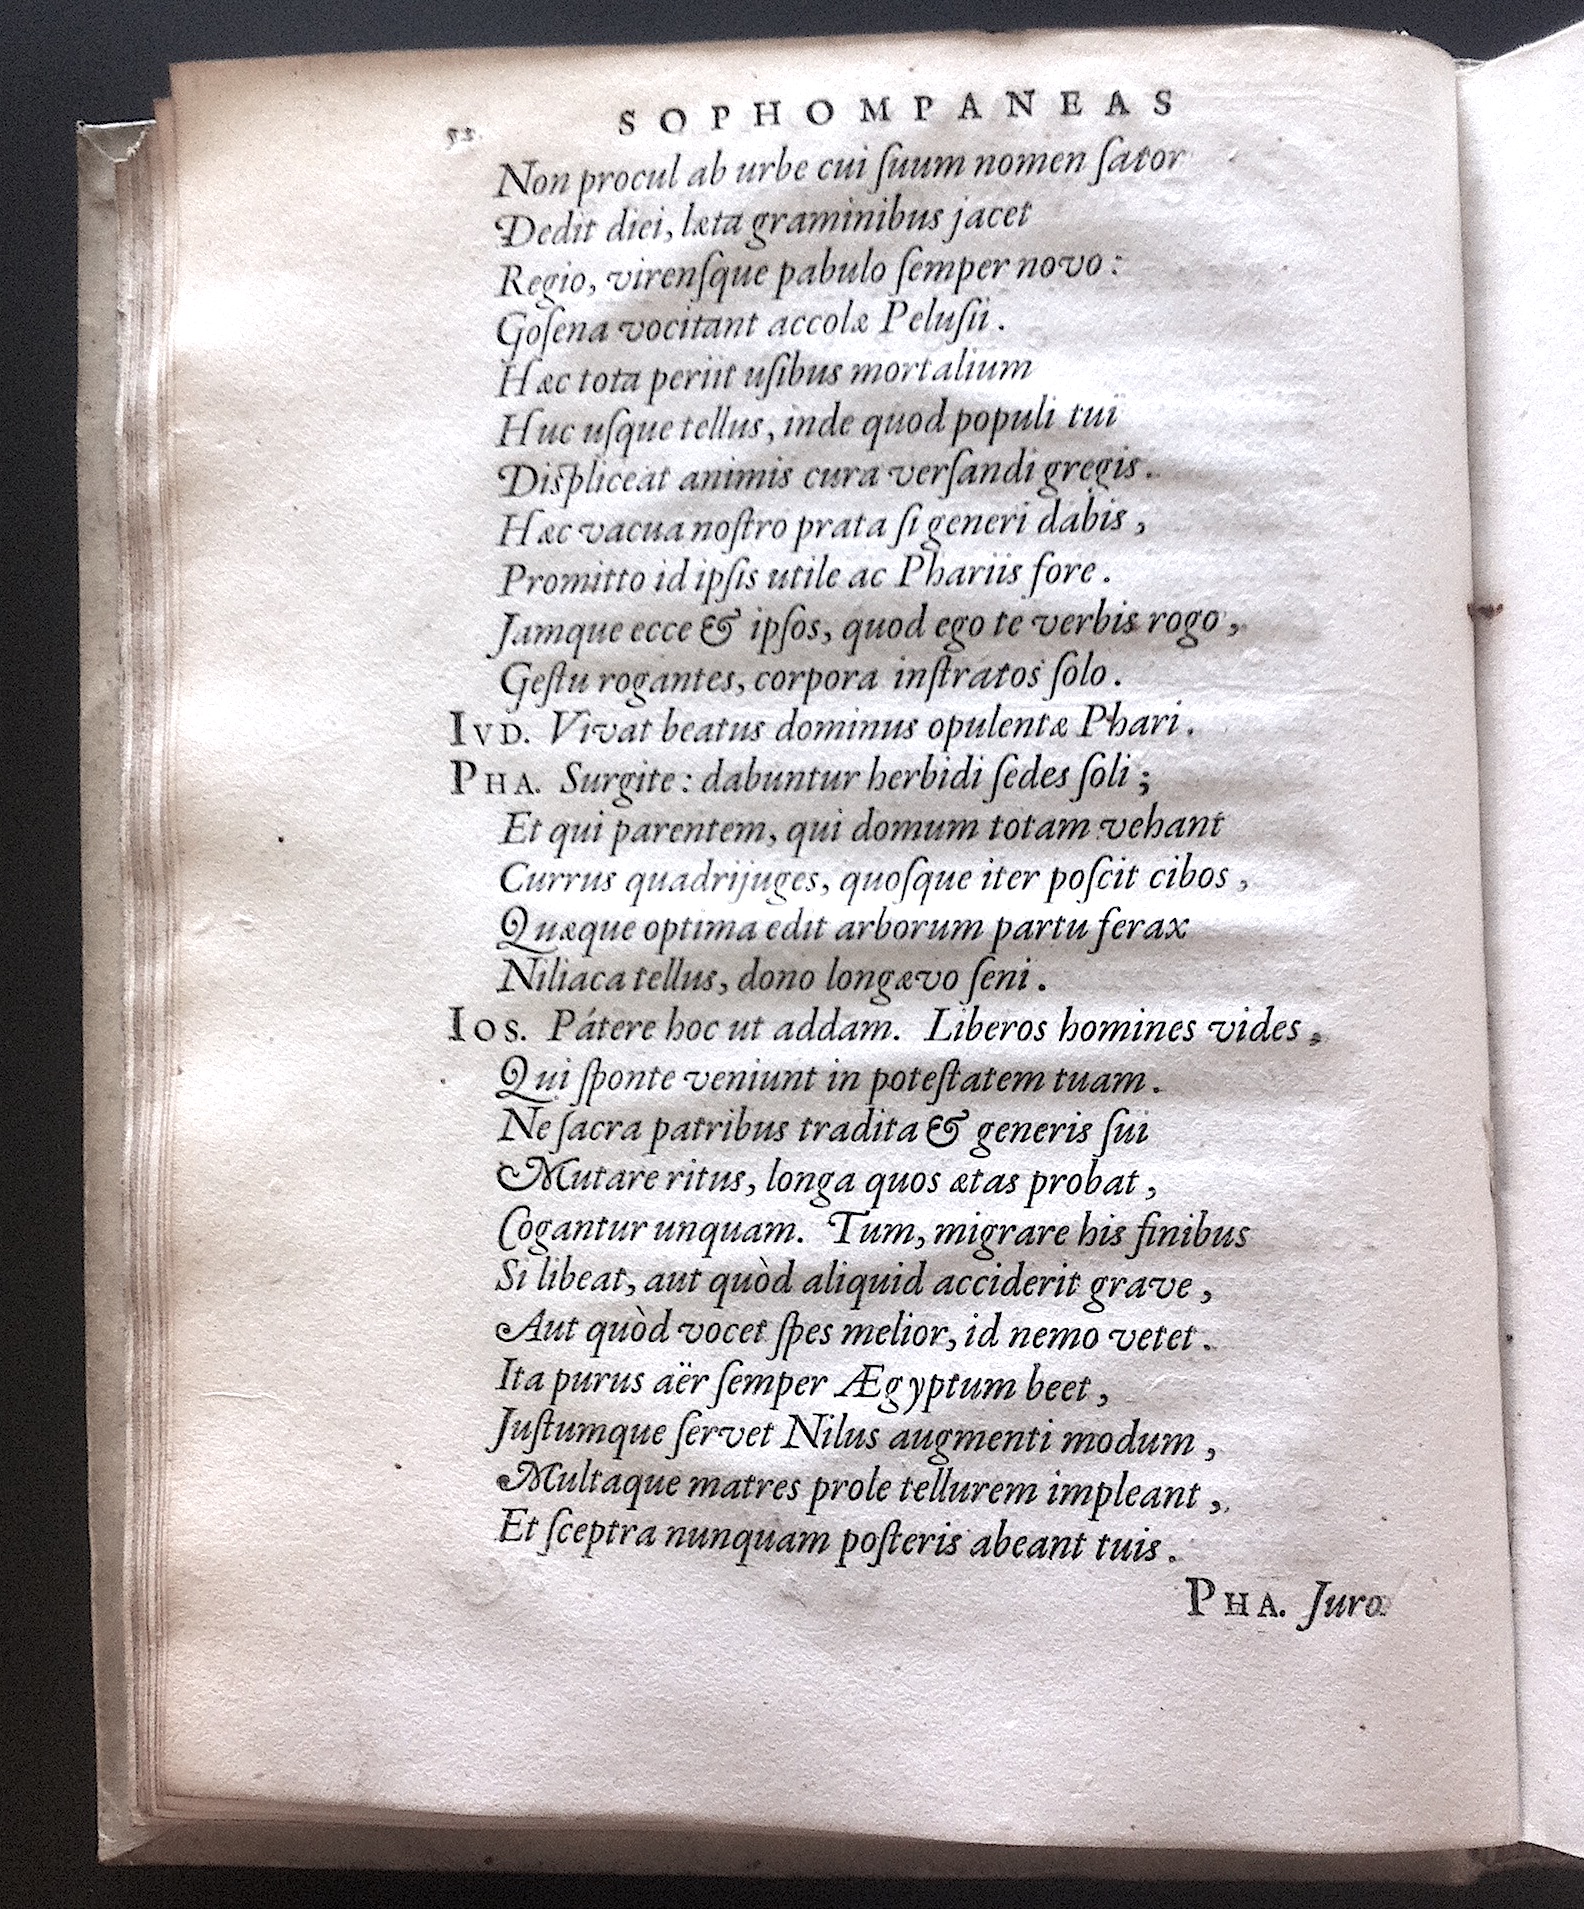 52 SOPHOMPANEAS
Non procul ab urbe cui ſuum nomen ſator
Dedit diei, læta graminibus jacet
Regio, virenſque pabulo ſemper novo:
Goſena vocitant accolæ Peluſii.
Hæc tota periit uſibus mortalium
Huc uſque tellus, inde quod populi tui
Diſpliceat animis cura verſandi gregis.
Hæc vacua noſtro prata ſi generi dabis,
Promitto id ipſis utile ac Phariis fore.
Jamque ecce & ipſos, quod ego te verbis rogo,
Geſtu rogantes, corpora inſtratos ſolo.
IVD. Vivat beatus dominus opulentæ Phari.
PHA. Surgite: dabuntur herbidi ſedes ſoli;
Et qui parentem, qui domum totam vehant
Currus quadrijuges, quoſque iter poſcit cibos,
Quæque optima edit arborum partu ferax
Niliaca tellus, dono longævo ſeni.
IOS. Pátere hoc ut addam. Liberos homines vides,
Qui ſponte veniunt in poteſtatem tuam.
Ne ſacra patribus tradita & generis ſui
Mutare ritus, longa quos ætas probat,
Cogantur unquam. Tum, migrare his finibus
Si libeat, aut quòd aliquid acciderit grave,
Aut quòd vocet ſpes melior, id nemo vetet.
Ita purus aër ſemper Ægyptum beet,
Juſtumque ſervet Nilus augmenti modum,
Multaque matres prole tellurem impleant,
Et ſceptra nunquam poſteris abeant tuis.
PHA. Juro